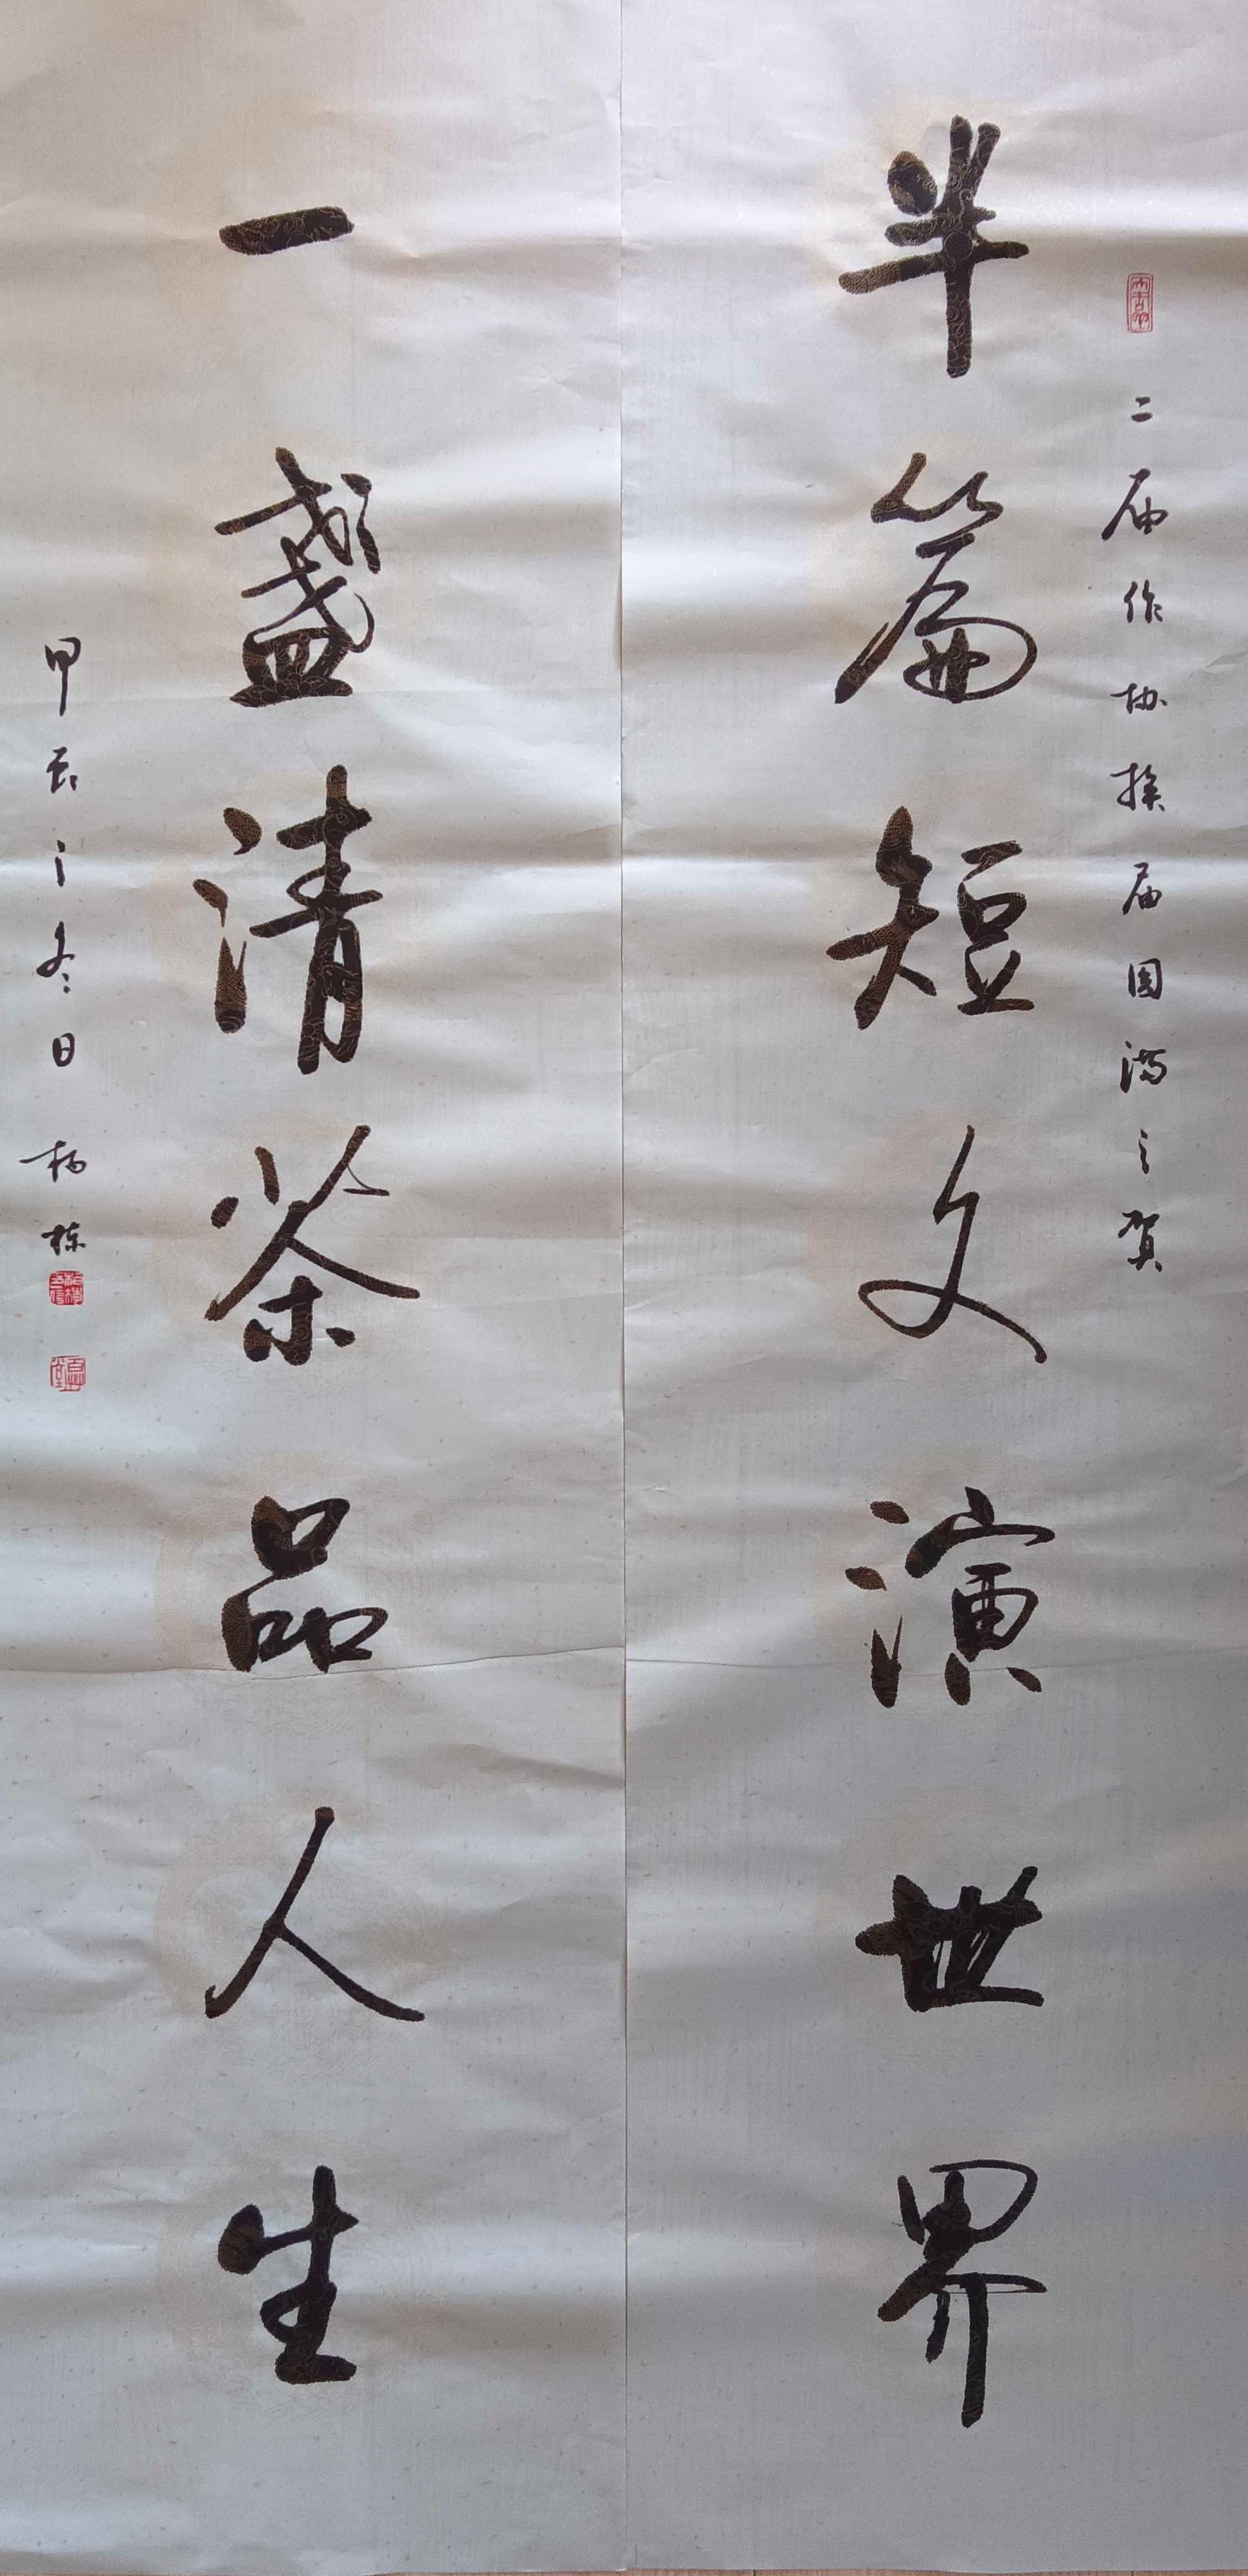 二届作协换届圆满之贺
半篇短文演世界
一盏清茶品人生
甲辰之冬日 杨栋